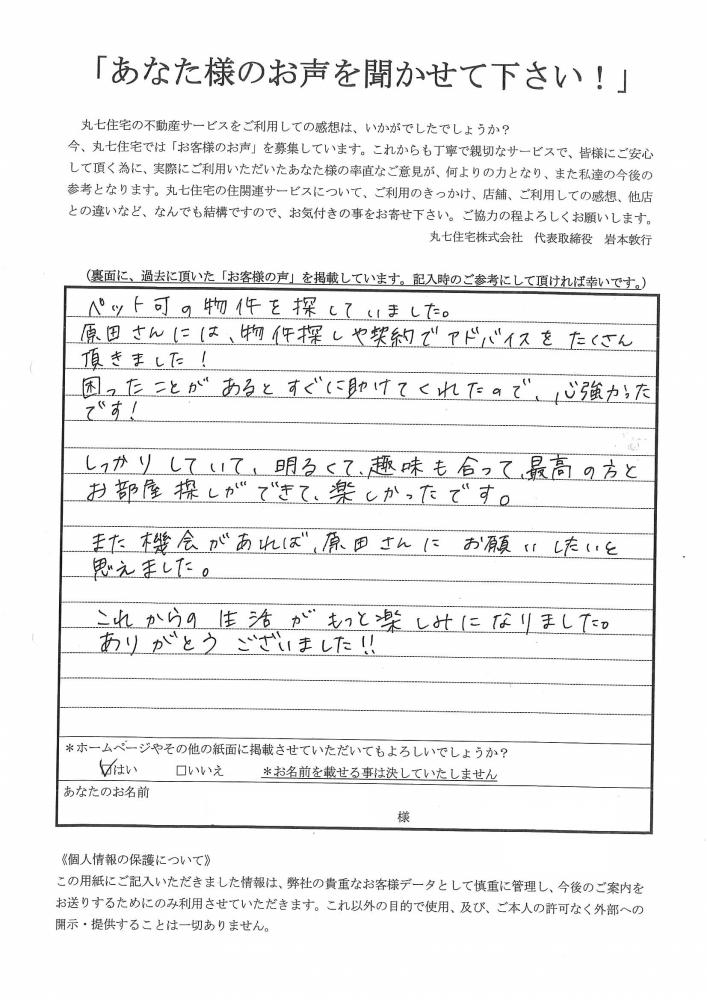 「あなた様のお声を聞かせて下さい！」
丸七住宅の不動産サービスをご利用しての感想は、いかがでしたでしょうか？
今、丸七住宅では「お客様のお声」を募集しています。これからも丁寧で親切なサービスで、皆様にご安心
して頂く為に、実際にご利用いただいたあなた様の率直なご意見が、何よりの力となり、また私達の今後の
参考となります。丸七住宅の住関連サービスについて、ご利用のきっかけ、店舗、ご利用しての感想、他店
との違いなど、なんでも結構ですので、お気付きの事をお寄せ下さい。ご協力の程よろしくお願いします。
丸七住宅株式会社　代表取締役　岩本敦行
（裏面に、過去に頂いた「お客様の声」を掲載しています。記入時のご参考にして頂ければ幸いです。）
ペット可の物件を探していました。
原田さんには、物件探しや契約でアドバイスをたくさん
頂きました！
困ったことがあるとすぐに助けてくれたので、心強かった
です！
しっかりしていて、明るくて、趣味も合って、最高の方と
お部屋探しができて、楽しかったです。
また機会があれば、原田さんにお願いしたいと
思えました。
これからの生活がもっと楽しみになりました。
ありがとうございました!!
＊ホームページやその他の紙面に掲載させていただいてもよろしいでしょうか？
☑はい　□いいえ　＊お名前を載せる事は決していたしません
あなたのお名前
様
《個人情報の保護について》
この用紙にご記入いただきました情報は、弊社の貴重なお客様データとして慎重に管理し、今後のご案内を
お送りするためにのみ利用させていただきます。これ以外の目的で使用、及び、ご本人の許可なく外部への
開示・提供することは一切ありません。